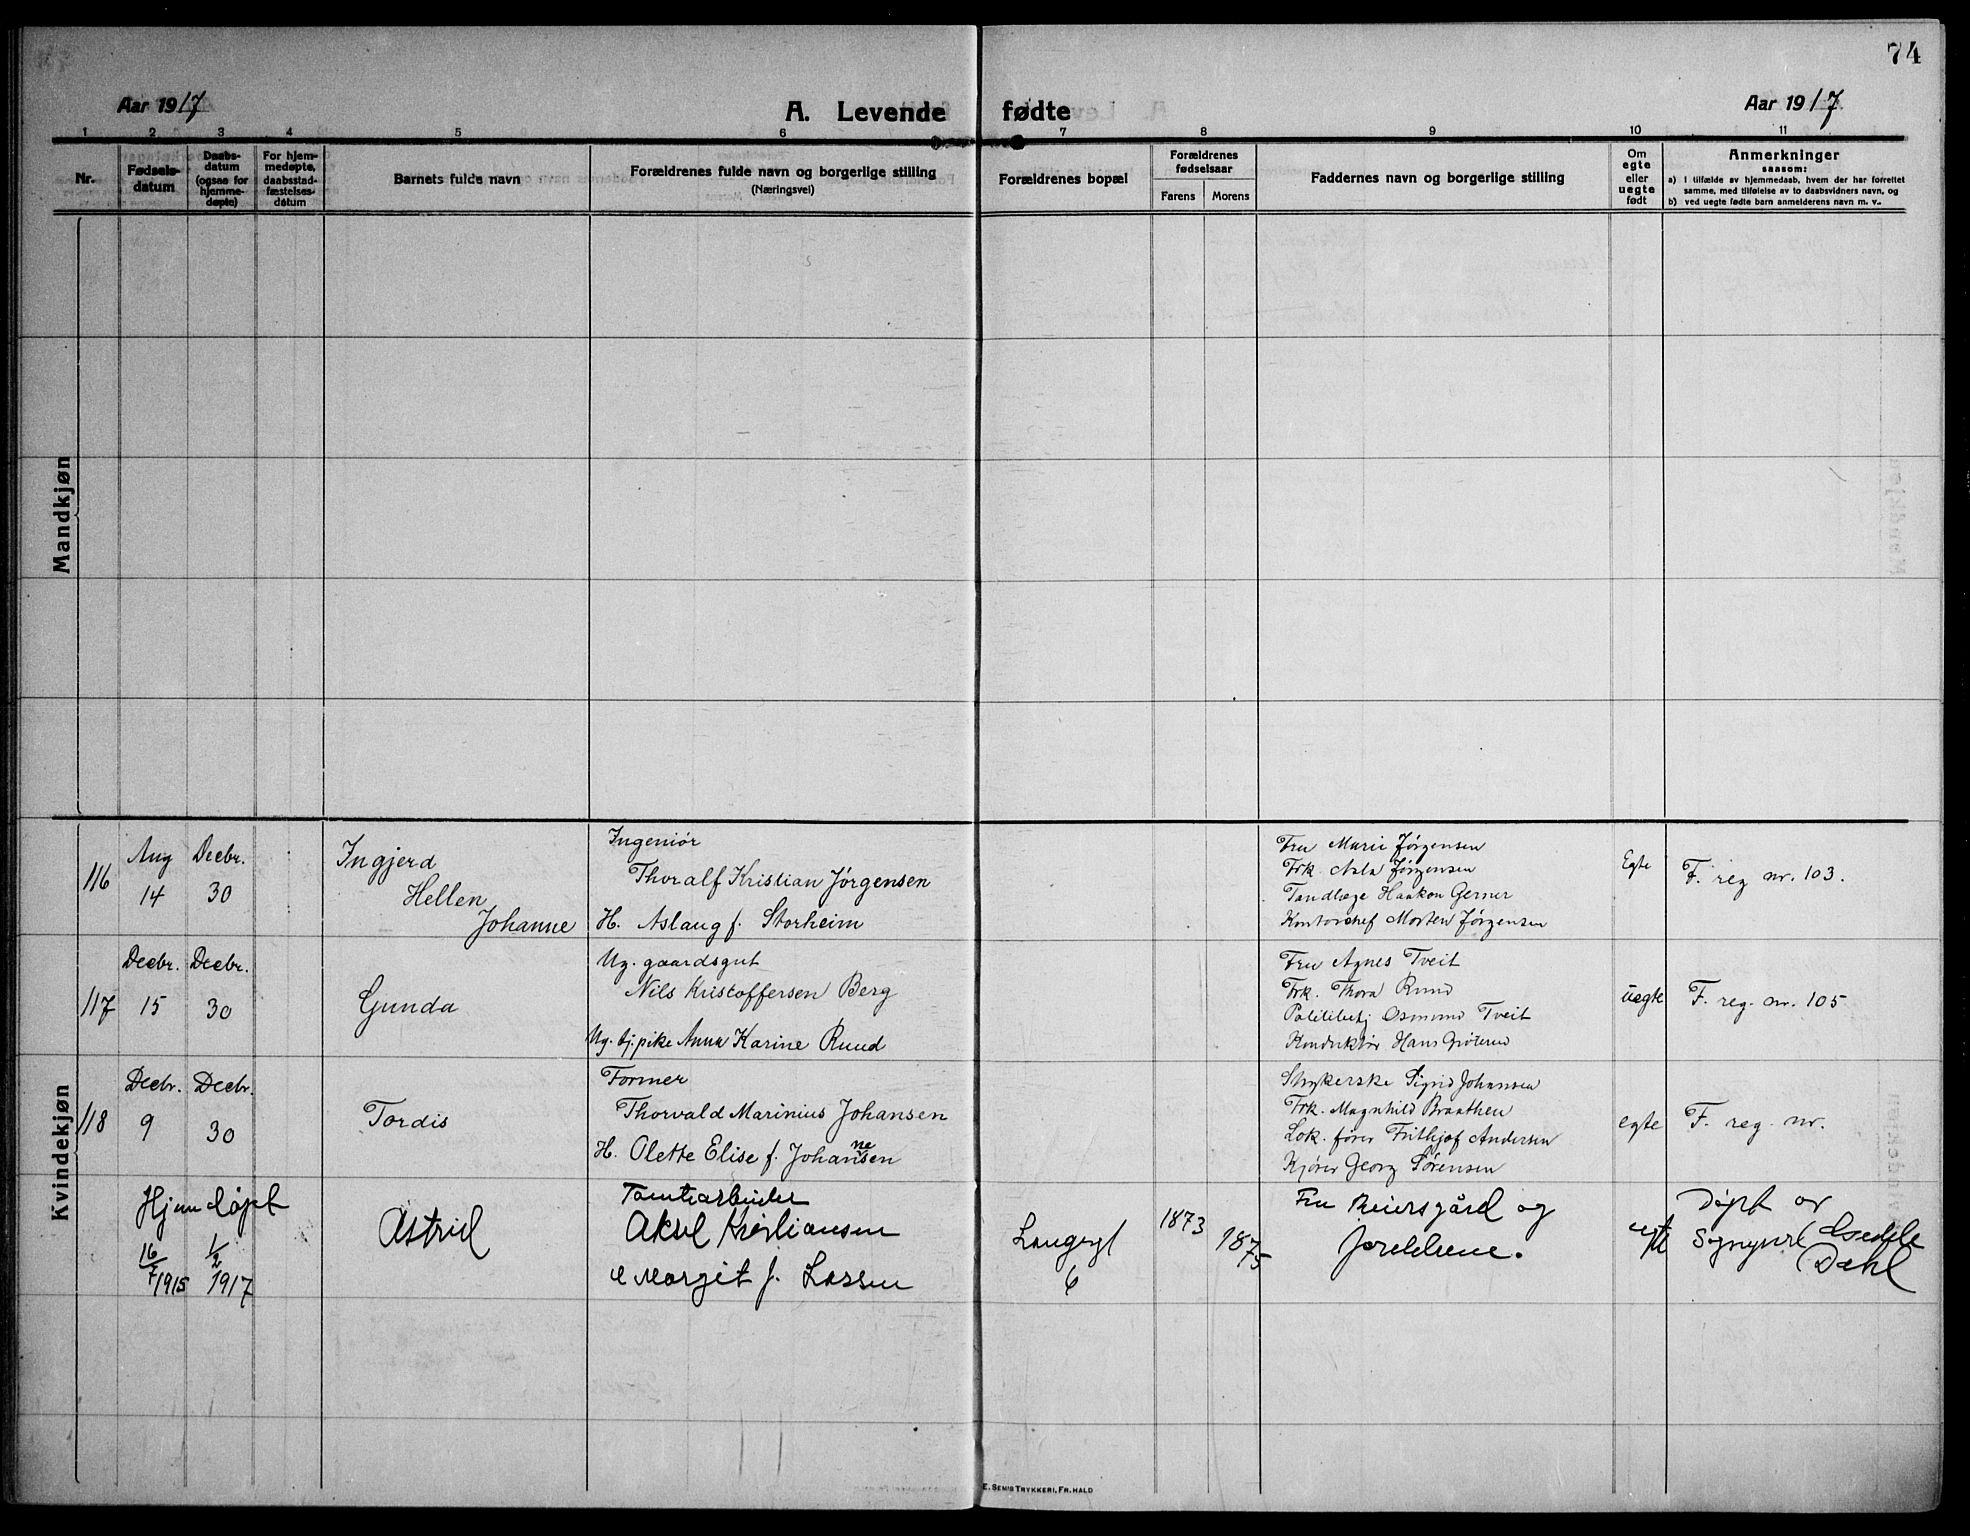 74
Aar 1917
A. Levende fødte
Aar 1917
1 2 3 4 5 6 7 8 9 10 11
Nr.
Fødsels-
datum
Daabs-
datum
(ogsaa for
hjemme-
døpte)
For hjem-
medøpte,
daabsstad-
fæstelses-
datum
Barnets fulde navn
Forældrenes fulde navn og borgerlige stilling
(Næringsvei)
Forældrenes bopæl
Forældrenes
fødselsaar
Farens Morens
Faddernes navn og borgerlige stilling
Om
egte
eller
uegte
født
Anmerkninger
saasom:
a) I tilfælde av hjemmedaab, hvem der har forrettet
samme, med tilføielse av to daabsvidners navn, og
b) ved uegte fødte barn anmelderens navn m. v.
Mandkjøn
Kvindekjøn
116
Aug
14
Decbr.
30
Ingjerd
Hellen
Johanne
Ingeniør
Thoralf Kristian Jørgensen
H. Aslaug f. Storheim
Fru Marie Jørgensen
Frk. Asta Jørgensen
Tandlæge Haakon Gerner
Kontorchef Morten Jørgensen
Egte
F. reg nr. 103.
117
Decbr.
15
Decbr.
30
Gunda
Ug. gaardsgut
Nils Kristoffersen Berg
Ug. tj. pike Anna Karine Ruud
Fru Agnes Tveit
Frk. Thora Ruud
Politibetj Osmund Tveit
Konduktør Hans
uegte
F. reg. nr. 105
118
Decbr.
9
Decbr.
30
Tordis
Former
Thorvald Marinius Johansen
H. Olette Elise f. Johannesen
Strykerske Sigrid Johansen
Frk. Magnhild Braathen
Lok. fører Frithjof Andersen
Kjører Georg Sørensen
egte
F. reg. nr.
Hjemdøpt
16/7 1915
1/2 1917
Astrid
Tomtearbeider
Aksel Kristiansen
& Margit f. Lassen
Langegt
6
1873
1875
Fru Beiersgård og
foreldrene.
egte
Døpt av
Sogneprest
Dahl
E. Sem's Trykkeri, Fr.hald